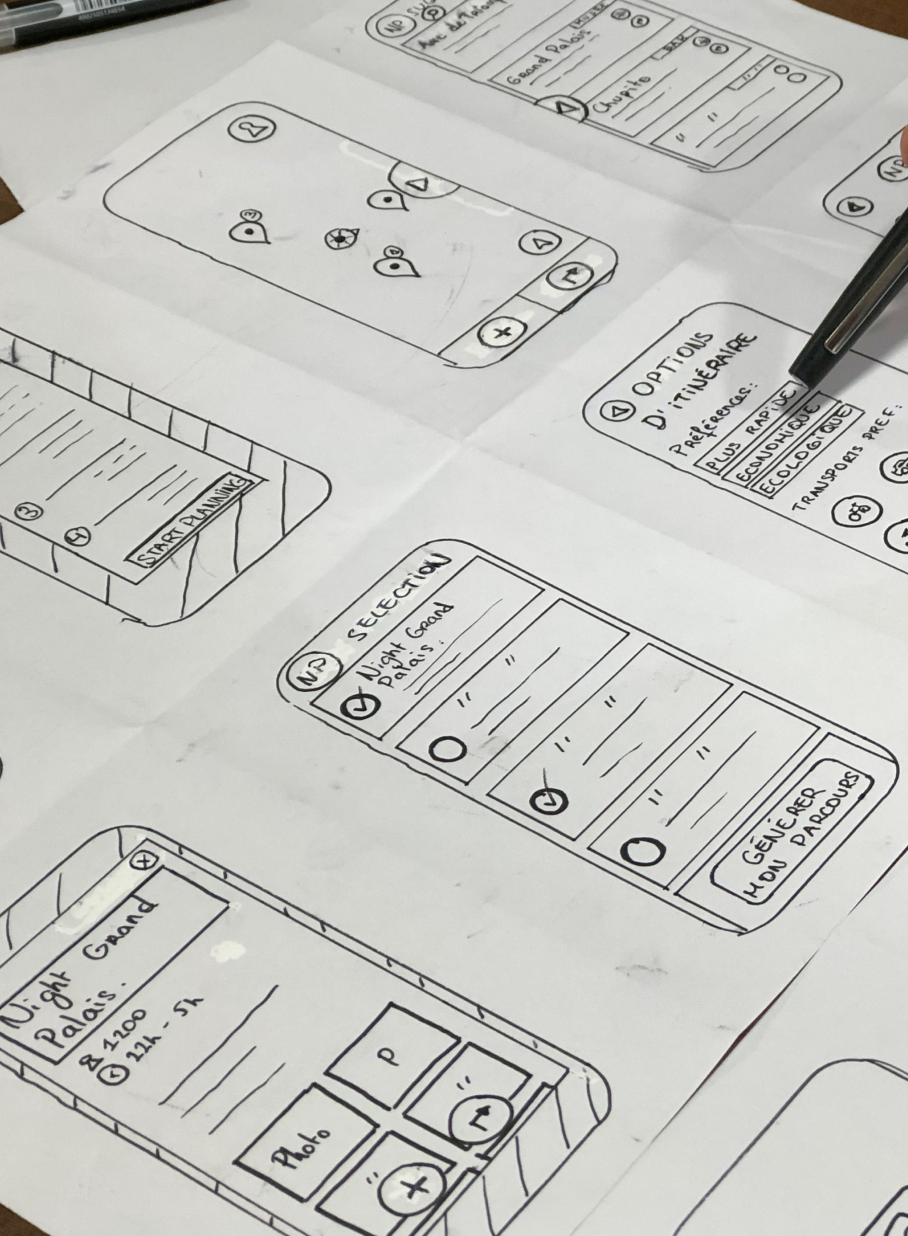 NP
Arc de
Grand Palais
BAR
Chupito
" "
NP
3
OPTIONS
D'ITINÉRAIRE
Préférences:
PLUS RAPIDE
ECONOMIQUE
ECOLOGIQUE
TRANSPORTS PREF:
3
4
START PLANNING
NP SELECTION
Night Grand
Palais.
" "
" "
" "
GÉNÉRER
MON PARCOURS
Night Grand
Palais.
1200
22h - 5h
P
"
Photo
"